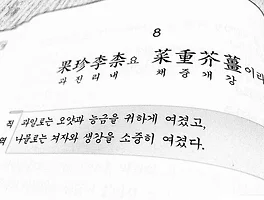 8
果珍李柰요 菜重芥薑이라
과진리내 채중개강
직 과일로는 오얏과 능금을 귀하게 여겼고,
역 나물로는 겨자와 생강을 소중히 여겼다.